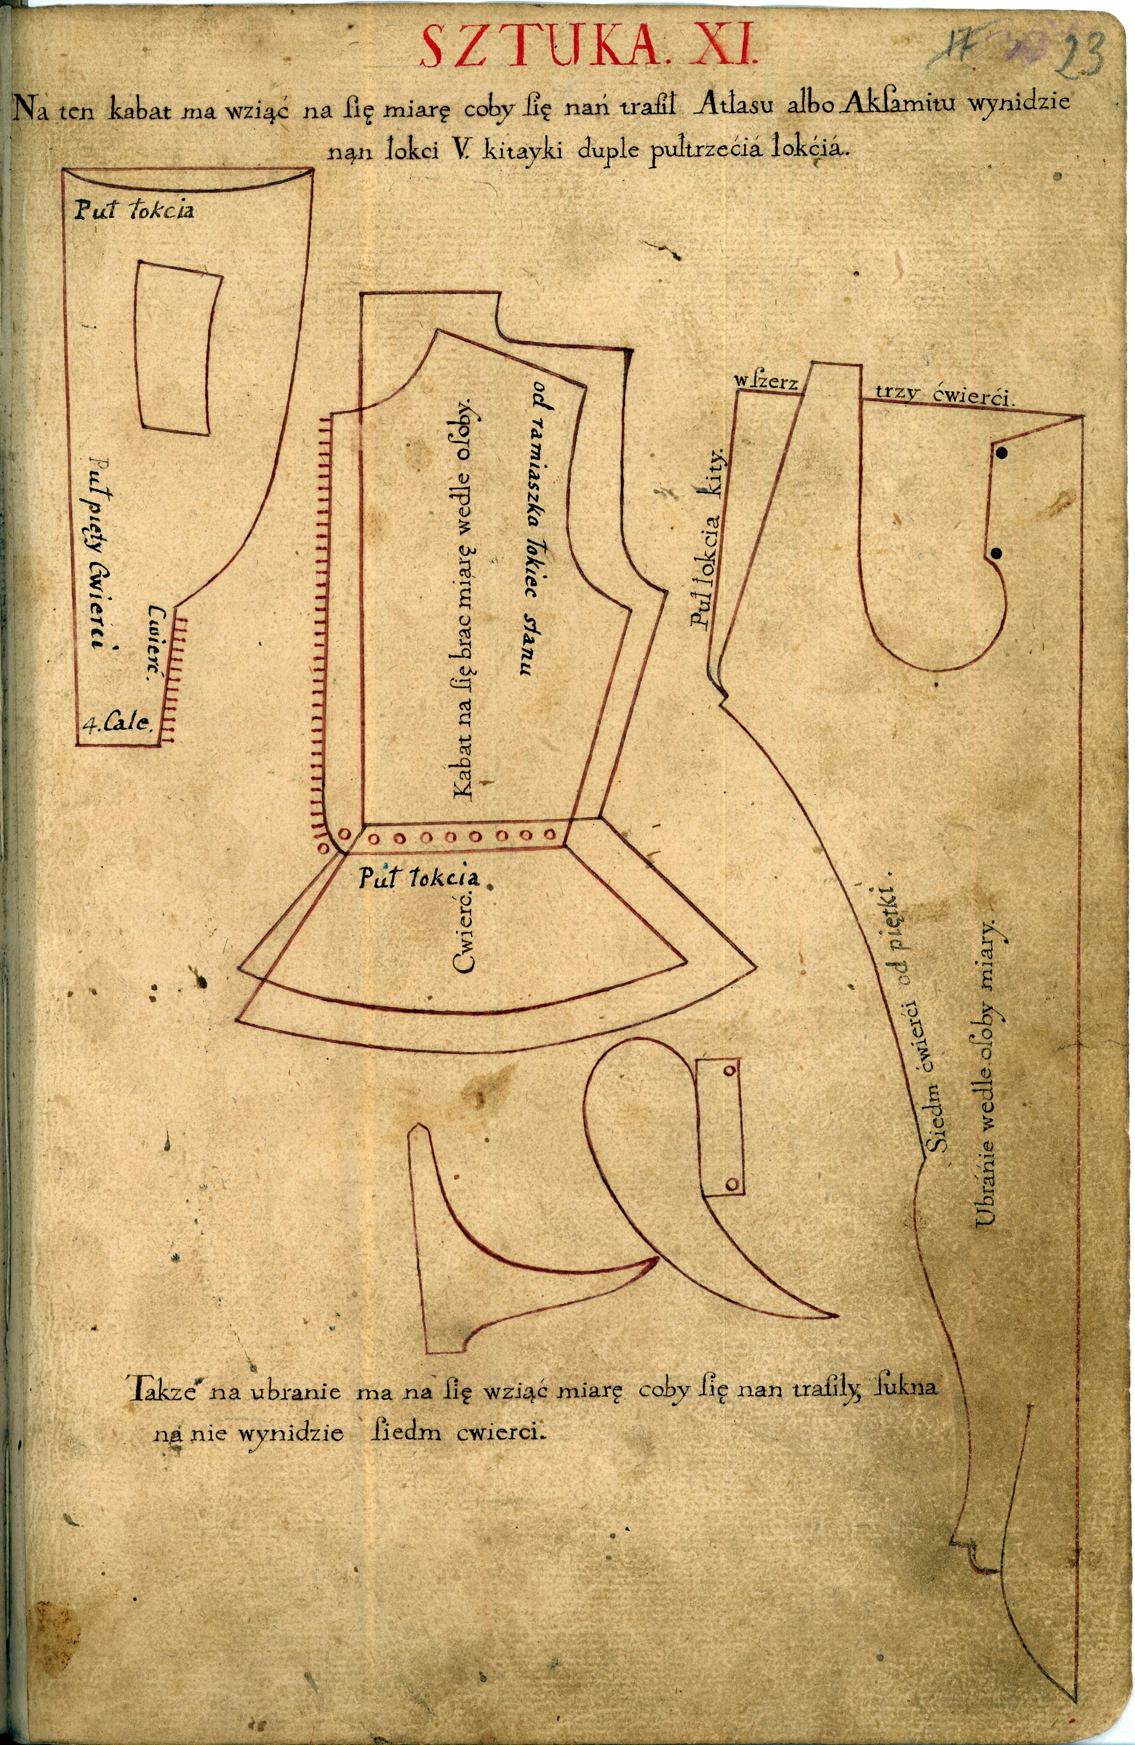 17 23
SZTUKA. XI.
Na ten kabat ma wziąć na ſię miarę coby ſię nań trafił Atłasu albo Akſamitu wynidzie
nąn łokci V. kitayki duple pułtrzećiá łokćiá.
Puł łokcia
Puł pięty Cwierci
Cwierć.
4. Cale.
Kabat na ſię brac miarę wedle oſoby.
od ramiaszka łokiec stanu
Puł łokcia.
Cwierć.
wſzerz trzy ćwierći.
Puł łokcia kity.
Siedm ćwierci od piętki.
Ubránie wedle oſoby miary.
Takze na ubranie ma na ſię wziąć miarę coby ſię nan trafiły, ſukna
ná nie wynidzie ſiedm cwierci.